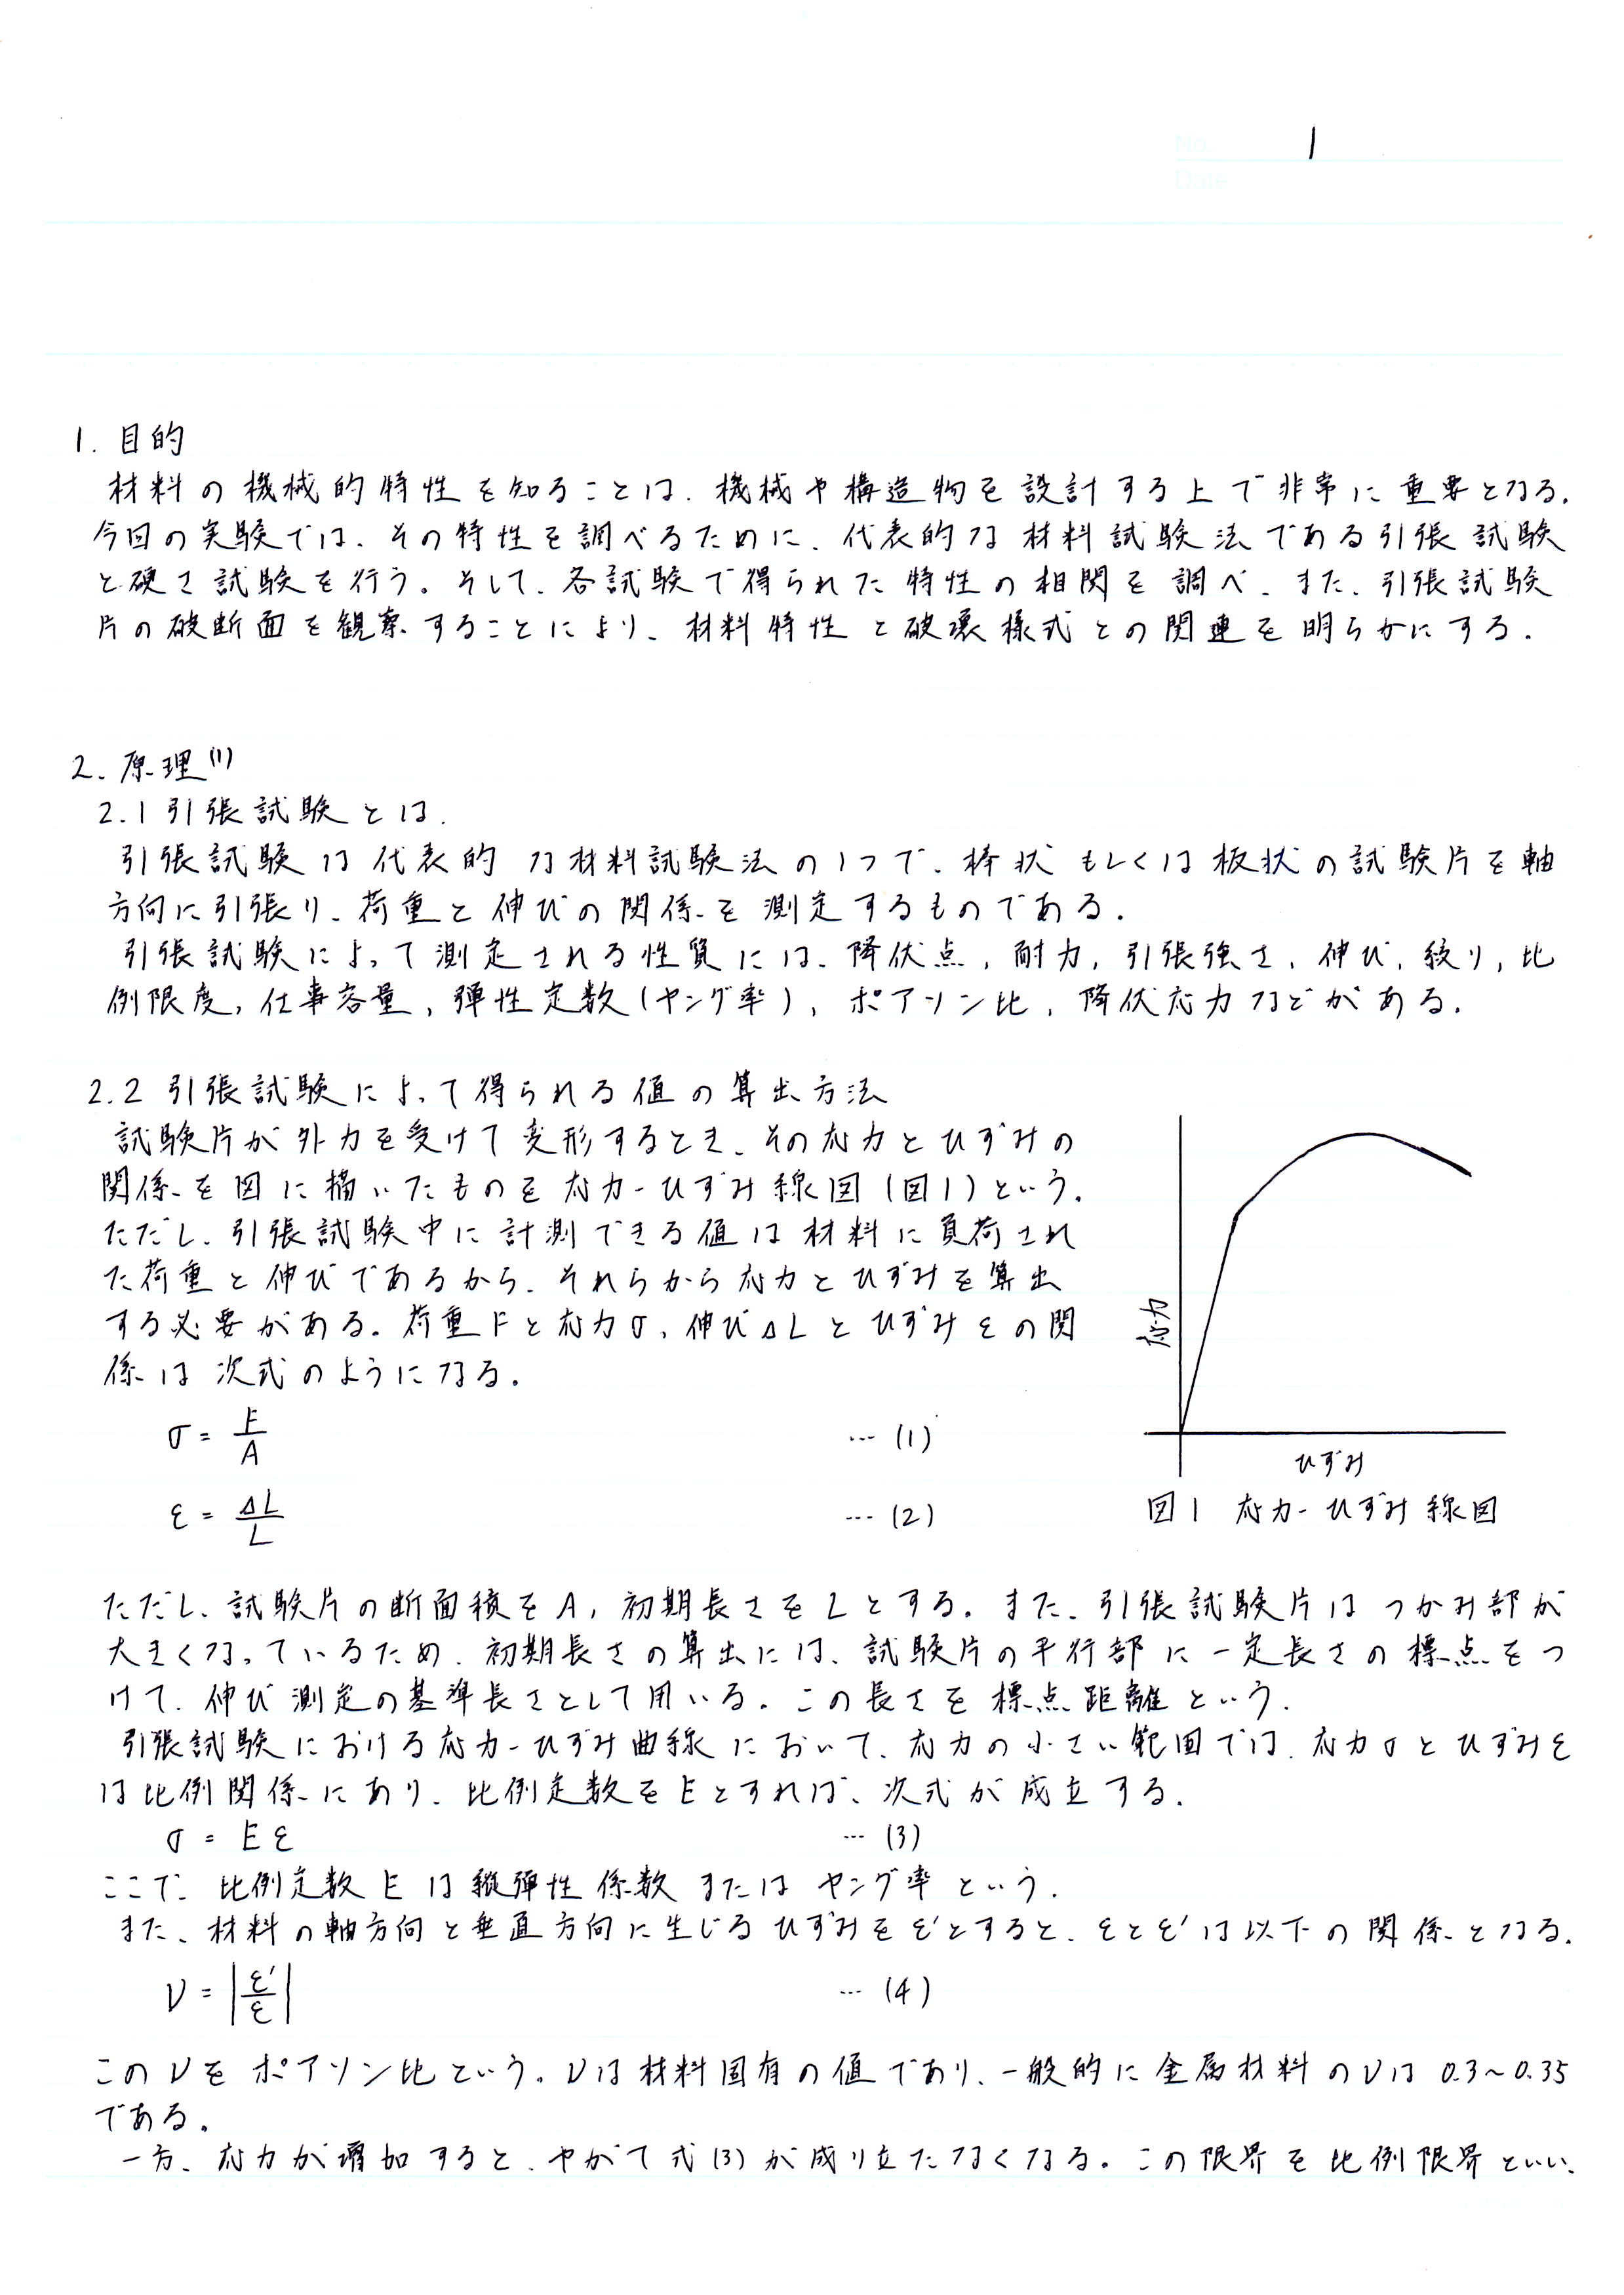 No. 1
Date
1. 目的
材料の機械的特性を知ることは、機械や構造物を設計する上で非常に重要となる.
今回の実験では、その特性を調べるために、代表的な材料試験法である引張試験
と硬さ試験を行う。そして、各試験で得られた特性の相関を調べ、また、引張試験
片の破断面を観察することにより、材料特性と破壊様式との関連を明らかにする.
2. 原理(1)
2.1 引張試験とは.
引張試験は代表的な材料試験法の1つで、棒状もしくは板状の試験片を軸
方向に引張り、荷重と伸びの関係を測定するものである.
引張試験によって測定される性質には、降伏点, 耐力, 引張強さ, 伸び, 絞り, 比
例限度, 仕事容量, 弾性定数(ヤング率), ポアソン比, 降伏応力などがある.
2.2 引張試験によって得られる値の算出方法
試験片が外力を受けて変形するとき、その応力とひずみの
関係を図に描いたものを応力-ひずみ線図(図1)という.
ただし、引張試験中に計測できる値は材料に負荷され
た荷重と伸びであるから、それらから応力とひずみを算出
する必要がある。荷重Fと応力σ, 伸びΔLとひずみεの関
係は次式のようになる.
σ = F/A … (1)
ε = ΔL/L … (2)
応力
ひずみ
図1 応力-ひずみ線図
ただし、試験片の断面積をA, 初期長さをLとする。また、引張試験片はつかみ部が
大きくなっているため、初期長さの算出には、試験片の平行部に一定長さの標点をつ
けて、伸び測定の基準長さとして用いる。この長さを標点距離という.
引張試験における応力-ひずみ曲線において、応力の小さい範囲では、応力σとひずみε
は比例関係にあり、比例定数をEとすれば、次式が成立する.
σ = Eε … (3)
ここで、比例定数Eは縦弾性係数またはヤング率という.
また、材料の軸方向と垂直方向に生じるひずみをε'とすると、εとε'は以下の関係となる.
ν = |ε'/ε| … (4)
このνをポアソン比という。νは材料固有の値であり、一般的に金属材料のνは0.3~0.35
である。
一方、応力が増加すると、やがて式(3)が成り立たなくなる。この限界を比例限界といい、